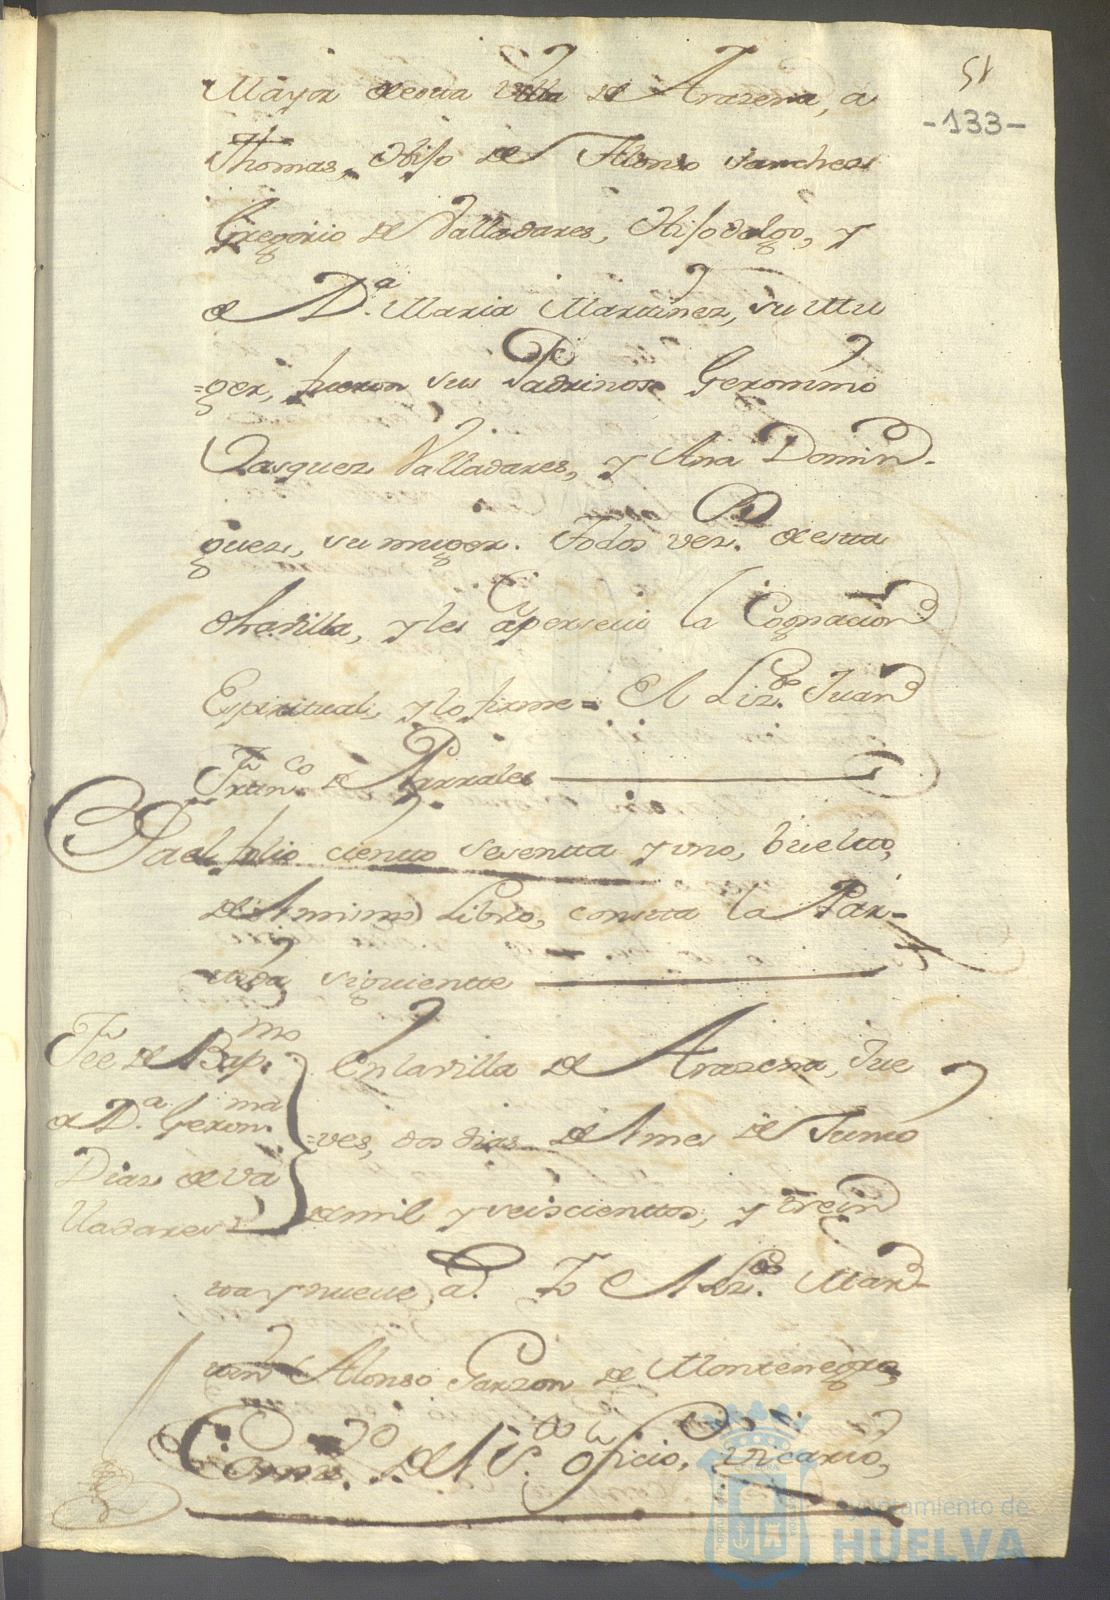 51
-133-
Mayor deesta Villa de Arazena, a
Thomas, Hijo de Alonso Sanchez
Gregorio de Valladares, Hijodalgo, y
de D.ª Maria Martinez, su Mu
=ger, fueron sus Padrinos Geronimo
Vasquez Valladares, y Ana Domin-
guez, su muger. Todos vez.ˢ de esta
dha villa, y les apersevi la Cognacion
Espiritual, y lo firme = El Liz.do Juan
Fran.co de Parrales
Ya el folio ciento sesentta y uno, buelto,
del mismo Libro, constta la Par-
tida siguientte
Fee de Bap.mo
de D.ª Geron.ma
Diaz de Va
lladares
En la villa de Arazena, Jue
=ves, dos dias del mes de Junio
de mil y seiscienttos, y trein
ta y nueve a.s Yo El Liz.do Mar-
tin Alonso Garzon de Montenegro,
Com.rio del S.to oficio, Vicario,
Ayuntamiento de
HUELVA